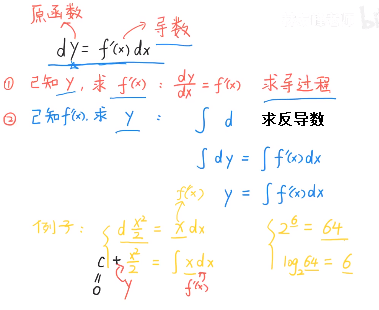 原函数
导数
dy = f'(x) dx
① 已知 y, 求 f'(x) : dy/dx = f'(x) 求导过程
② 已知 f'(x), 求 y : ∫ d 求反导数
∫ dy = ∫ f'(x) dx
f(x) y = ∫ f'(x) dx
例子: d x²/2 = x dx 2⁶ = 64
C + x²/2 = ∫ x dx log₂64 = 6
= 0 y f'(x)